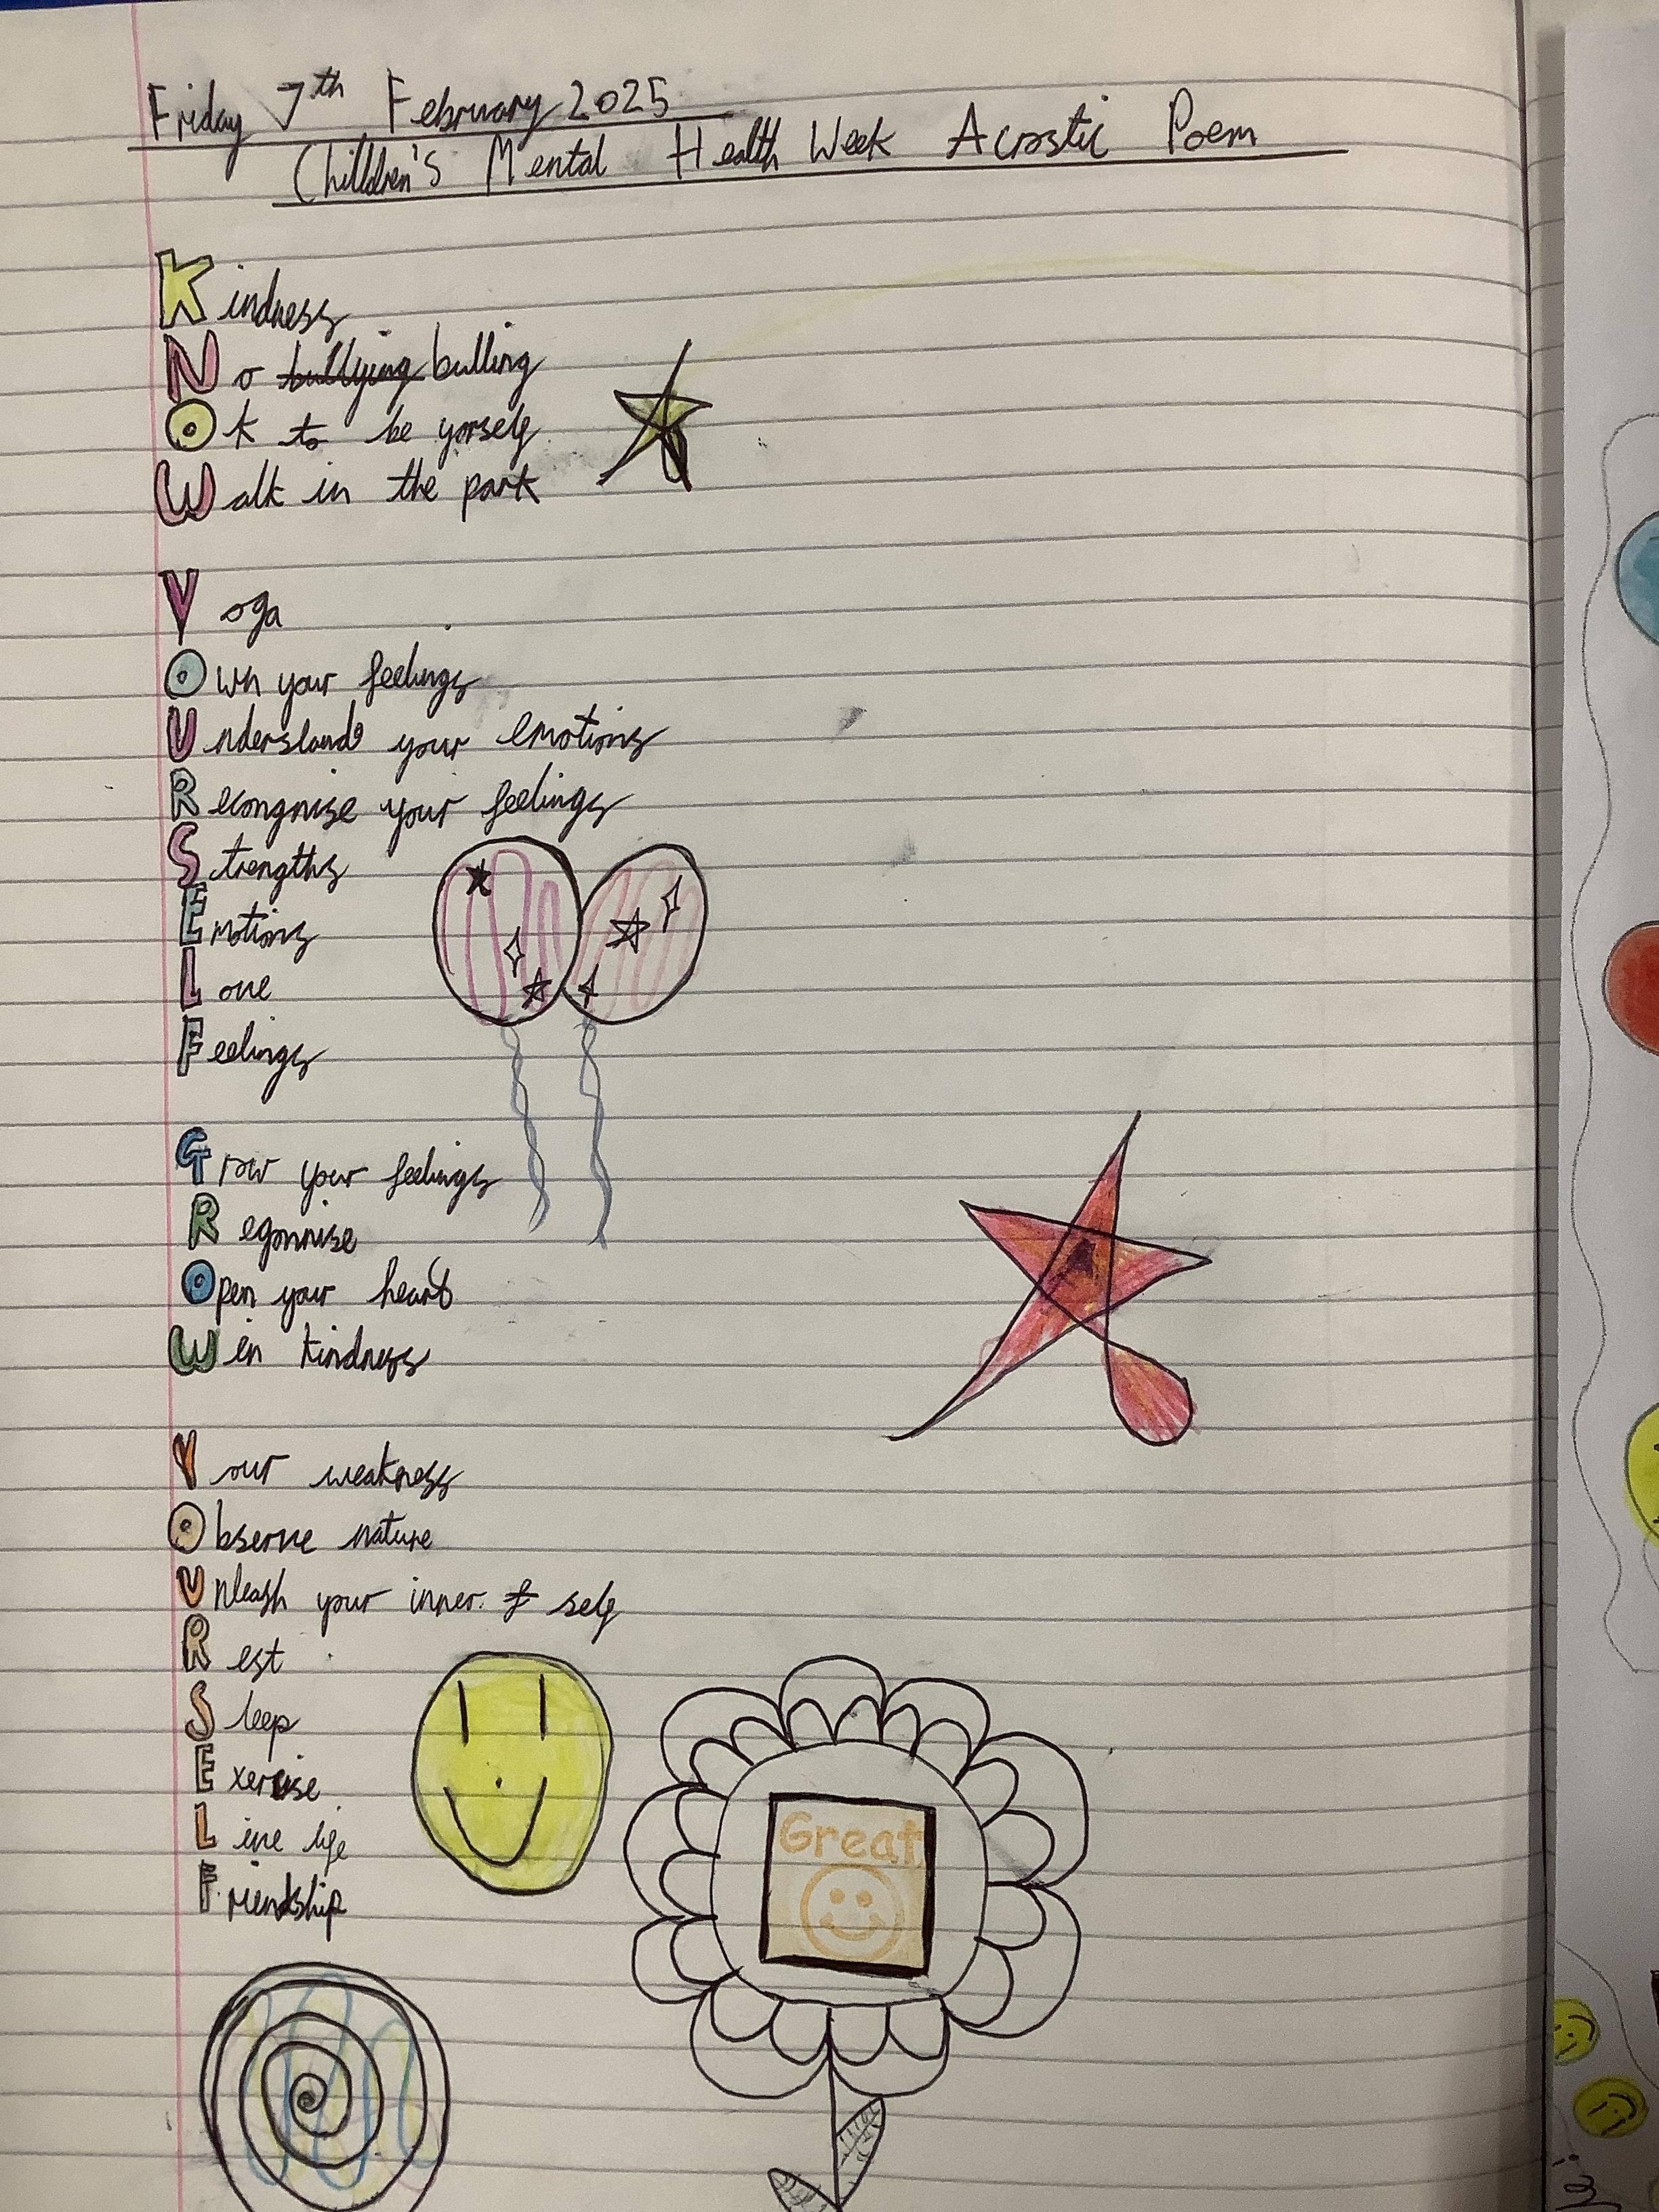 Friday 7th February 2025
Chilldren's Mental Health Week Acrostic Poem
Kindness
No bullying bulling
Ok to be yorself
Walk in the park
Yoga
Own your feelings
Understand your emotions
Recongnise your feelings
Strengths
Emotions
Love
Feelings
Grow your feelings
Regonnise
Open your heart
Win kindness
Your weakness
Observe nature
Unleash your inner self
Rest
Sleep
Exercise
Live life
Friendship
Great